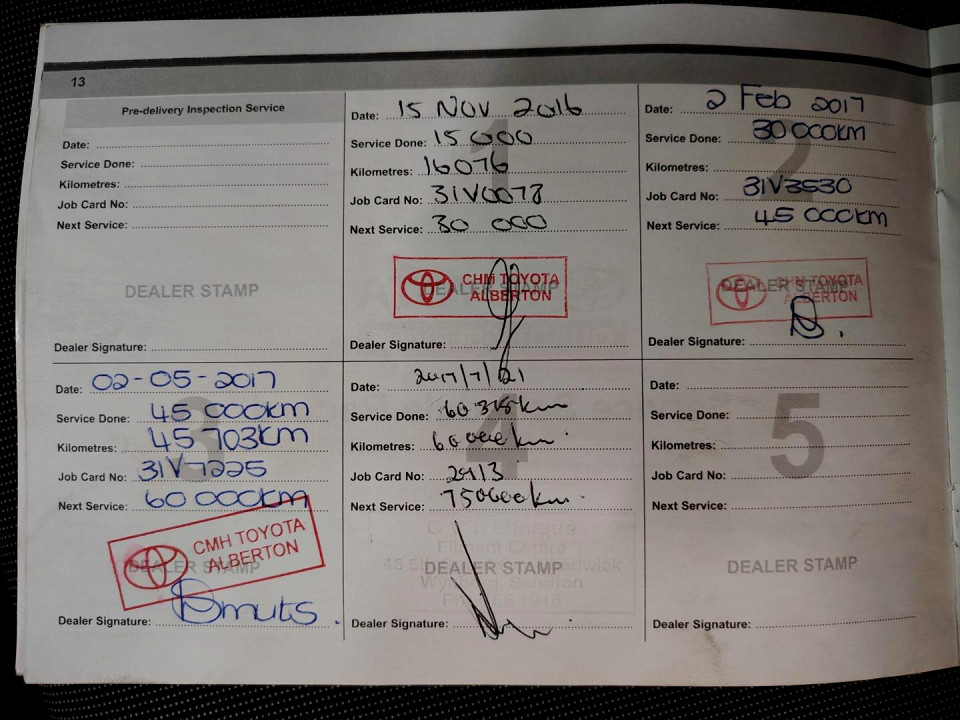 13
Pre-delivery Inspection Service
Date:
Service Done:
Kilometres:
Job Card No:
Next Service:
DEALER STAMP
Dealer Signature:
1
Date: 15 NOV 2016
Service Done: 15 000
Kilometres: 16076
Job Card No: 31V0078
Next Service: 30 000
CHM TOYOTA
ALBERTON
DEALER STAMP
Dealer Signature:
2
Date: 2 Feb 2017
Service Done: 30 000km
Kilometres:
Job Card No: 31V3530
Next Service: 45 000km
CHM TOYOTA
ALBERTON
DEALER STAMP
Dealer Signature:
3
Date: 02-05-2017
Service Done: 45 000km
Kilometres: 45 703km
Job Card No: 31V7225
Next Service: 60 000km
CMH TOYOTA
ALBERTON
DEALER STAMP
Dealer Signature: Smuts
4
Date: 2017/7/21
Service Done: 60 315km
Kilometres: 60 000km
Job Card No: 2913
Next Service: 75000km
Fitment Centre
DEALER STAMP
Sandton
Dealer Signature:
5
Date:
Service Done:
Kilometres:
Job Card No:
Next Service:
DEALER STAMP
Dealer Signature: